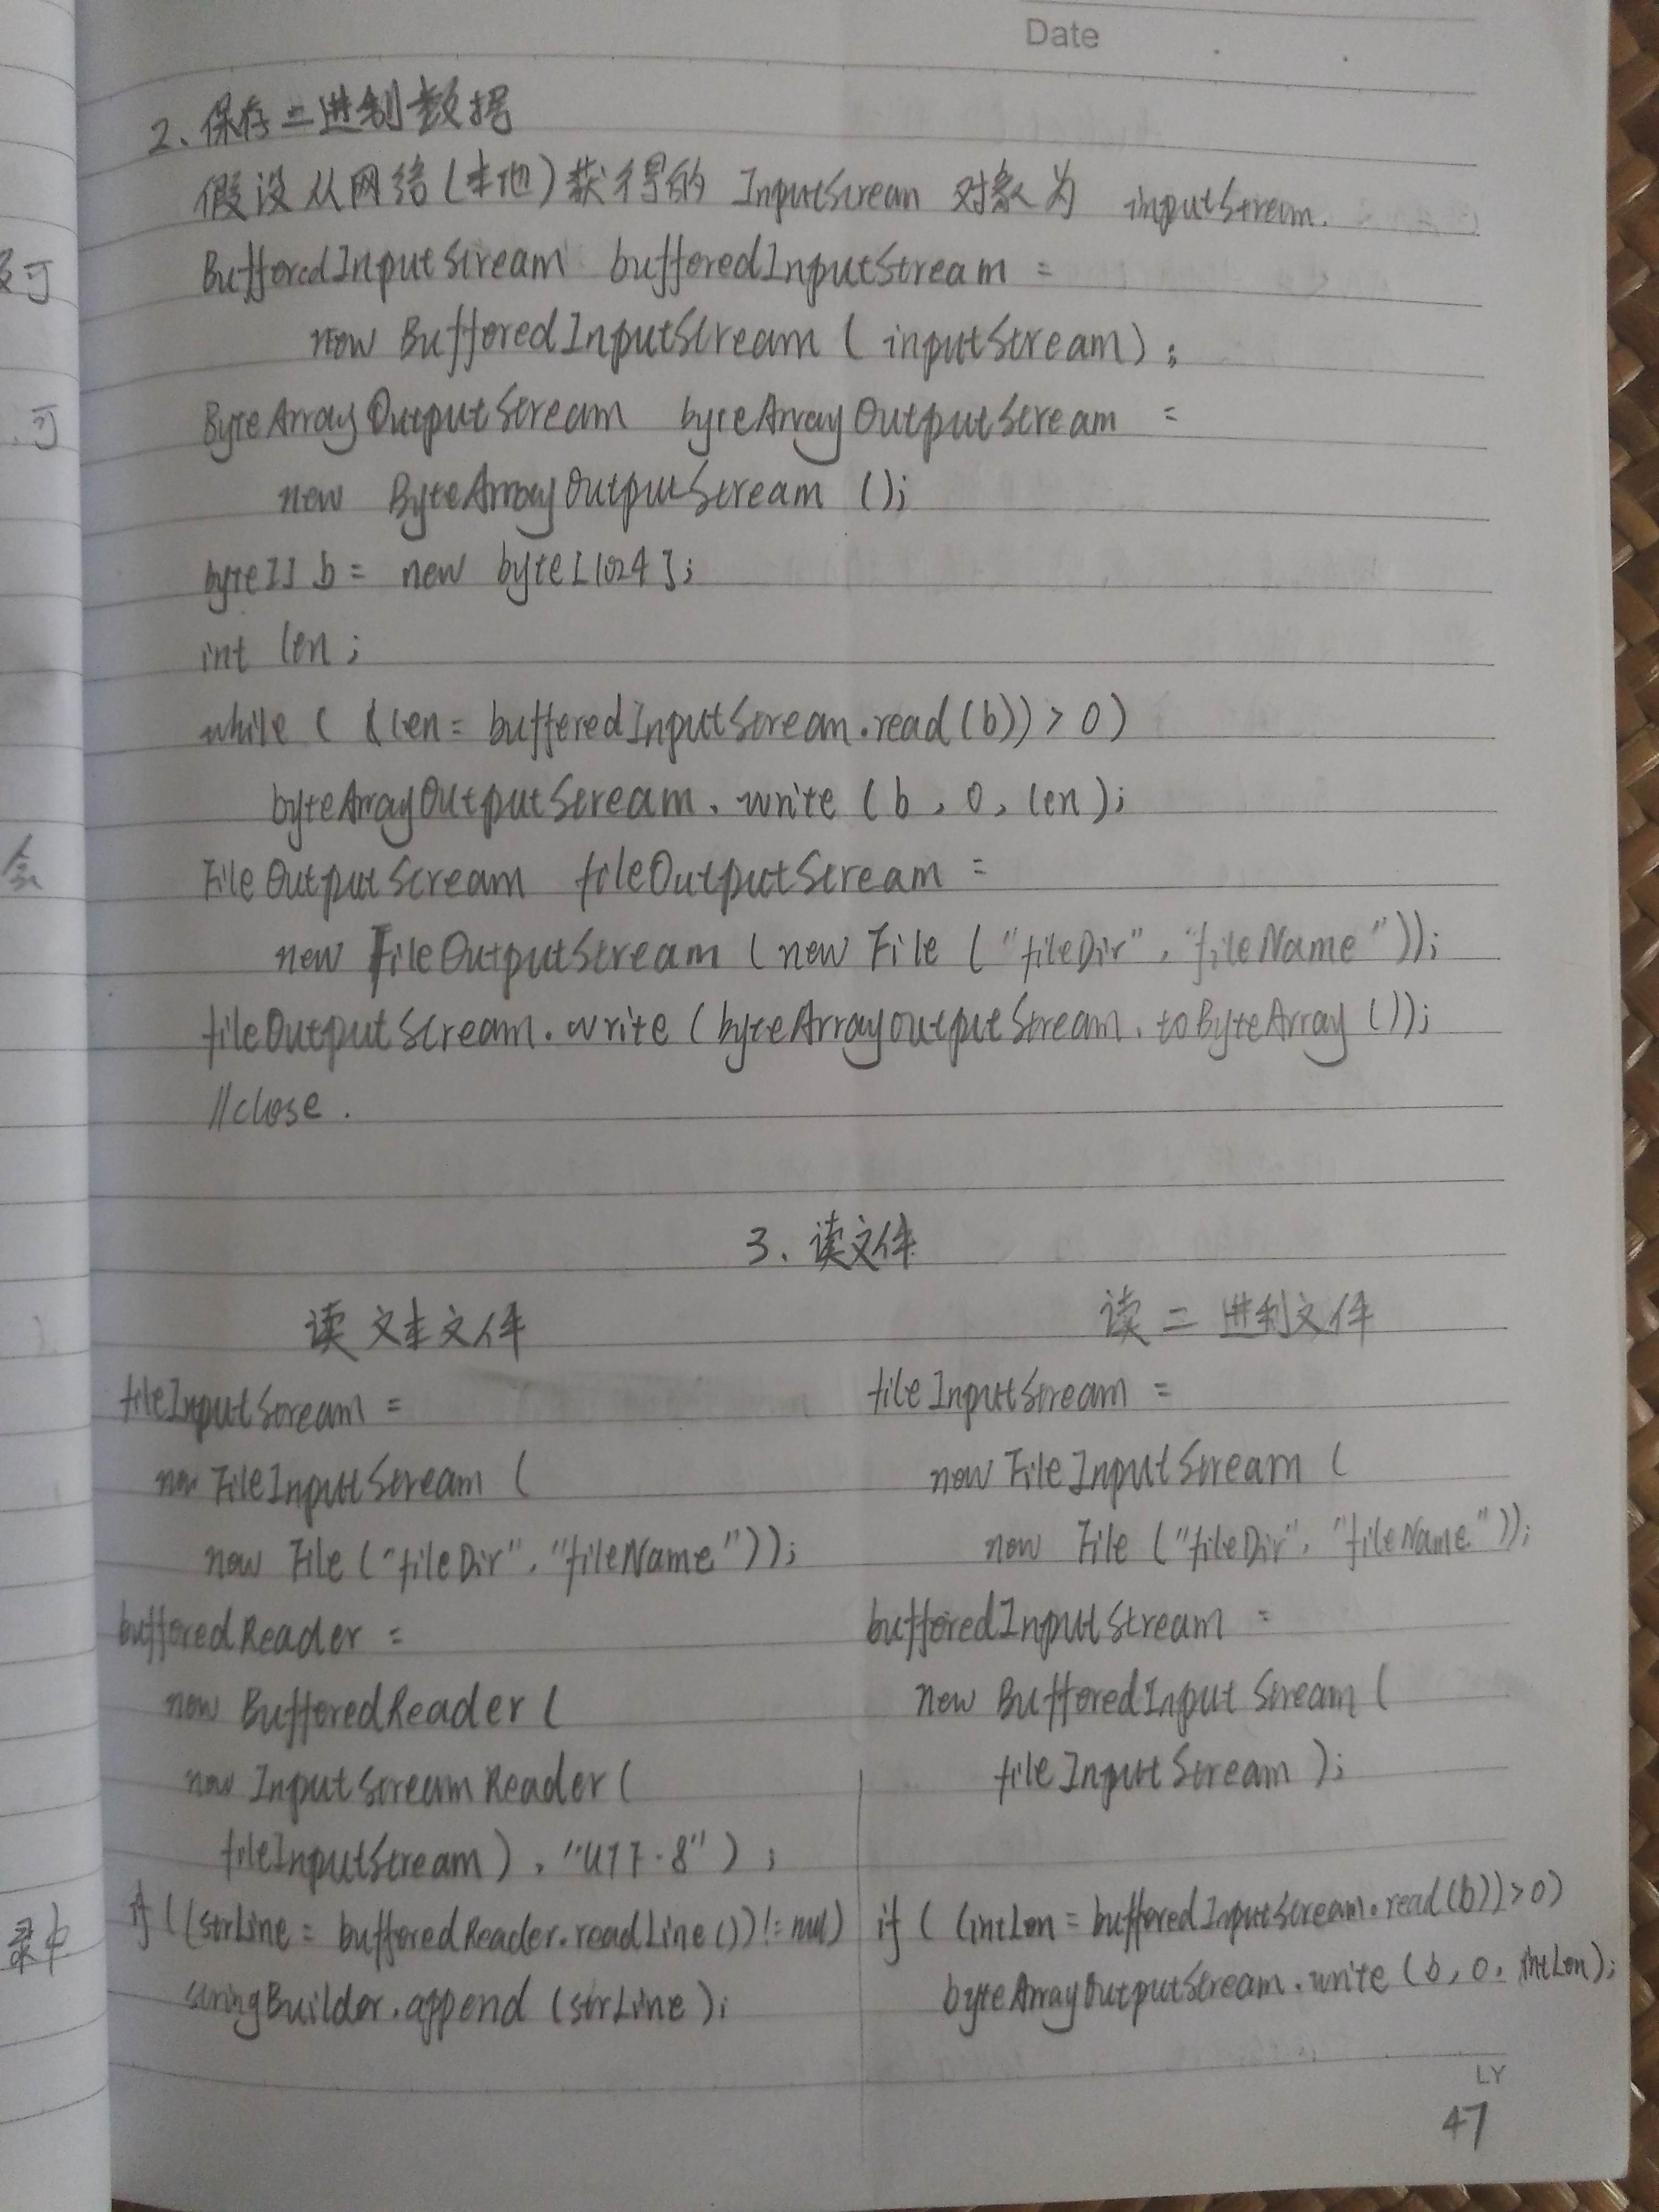 Date
2、保存二进制数据
假设从网络(本地)获得的 InputStream 对象为 inputStream.
BufferedInputStream bufferedInputStream =
new BufferedInputStream ( inputStream ) ;
ByteArrayOutputStream byteArrayOutputStream =
new ByteArrayOutputStream ();
byte[] b = new byte[1024];
int len ;
while ( (len = bufferedInputStream.read(b)) > 0)
byteArrayOutputStream. write ( b , 0 , len );
FileOutputStream fileOutputStream =
new FileOutputStream ( new File ( "fileDir" , "fileName" ));
fileOutputStream.write ( byteArrayOutputStream. toByteArray ());
//close .
3、读文件
读文本文件
fileInputStream =
new FileInputStream (
new File ( "fileDir" , "fileName" ));
bufferedReader =
new BufferedReader (
new InputStreamReader (
fileInputStream ) , "UTF-8" ) ;
if ( (strLine = bufferedReader.readLine()) != null)
stringBuilder.append (strLine );
读二进制文件
fileInputStream =
new FileInputStream (
new File ("fileDir", "fileName" ));
bufferedInputStream =
new BufferedInputStream (
fileInputStream );
if ( (intLen = bufferedInputStream.read(b)) > 0)
byteArrayOutputStream.write ( b , 0 , intLen);
LY
47